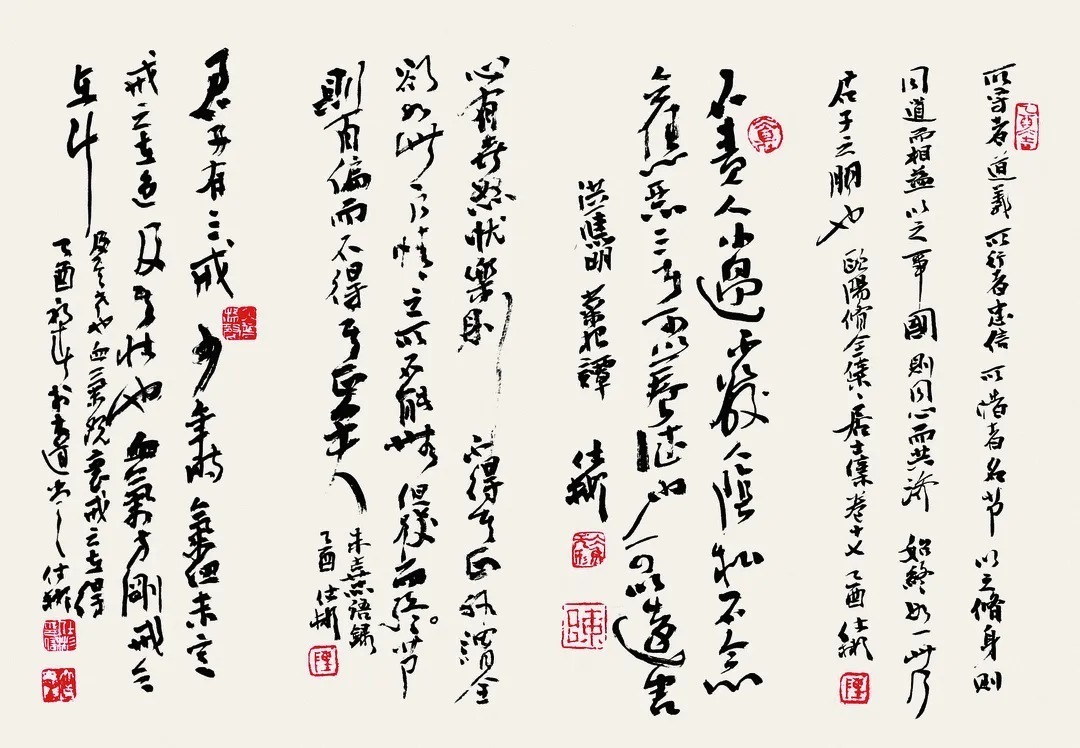 所守者道義所行者忠信所惜者名节以之脩身則
同道而相益以之事國則同心而共济始終如一此乃
君子之朋也 歐陽脩全集、居士集卷十七 乙酉 仕彬
不責人小過不發人陰私不念
舊惡三者可以養德也可以遠害
洪應明 菜根譚 仕彬
心有喜怒忧樂則不得其正非謂全
欲如此乃情之所不能無但發而中节
則有偏而不得其正矣
朱熹語録
乙酉 仕彬
君子有三戒少年時血氣未定
戒之在色及其壮也血氣方剛戒之
在斗
及其老也血氣既衰戒之在得
乙酉 仕彬